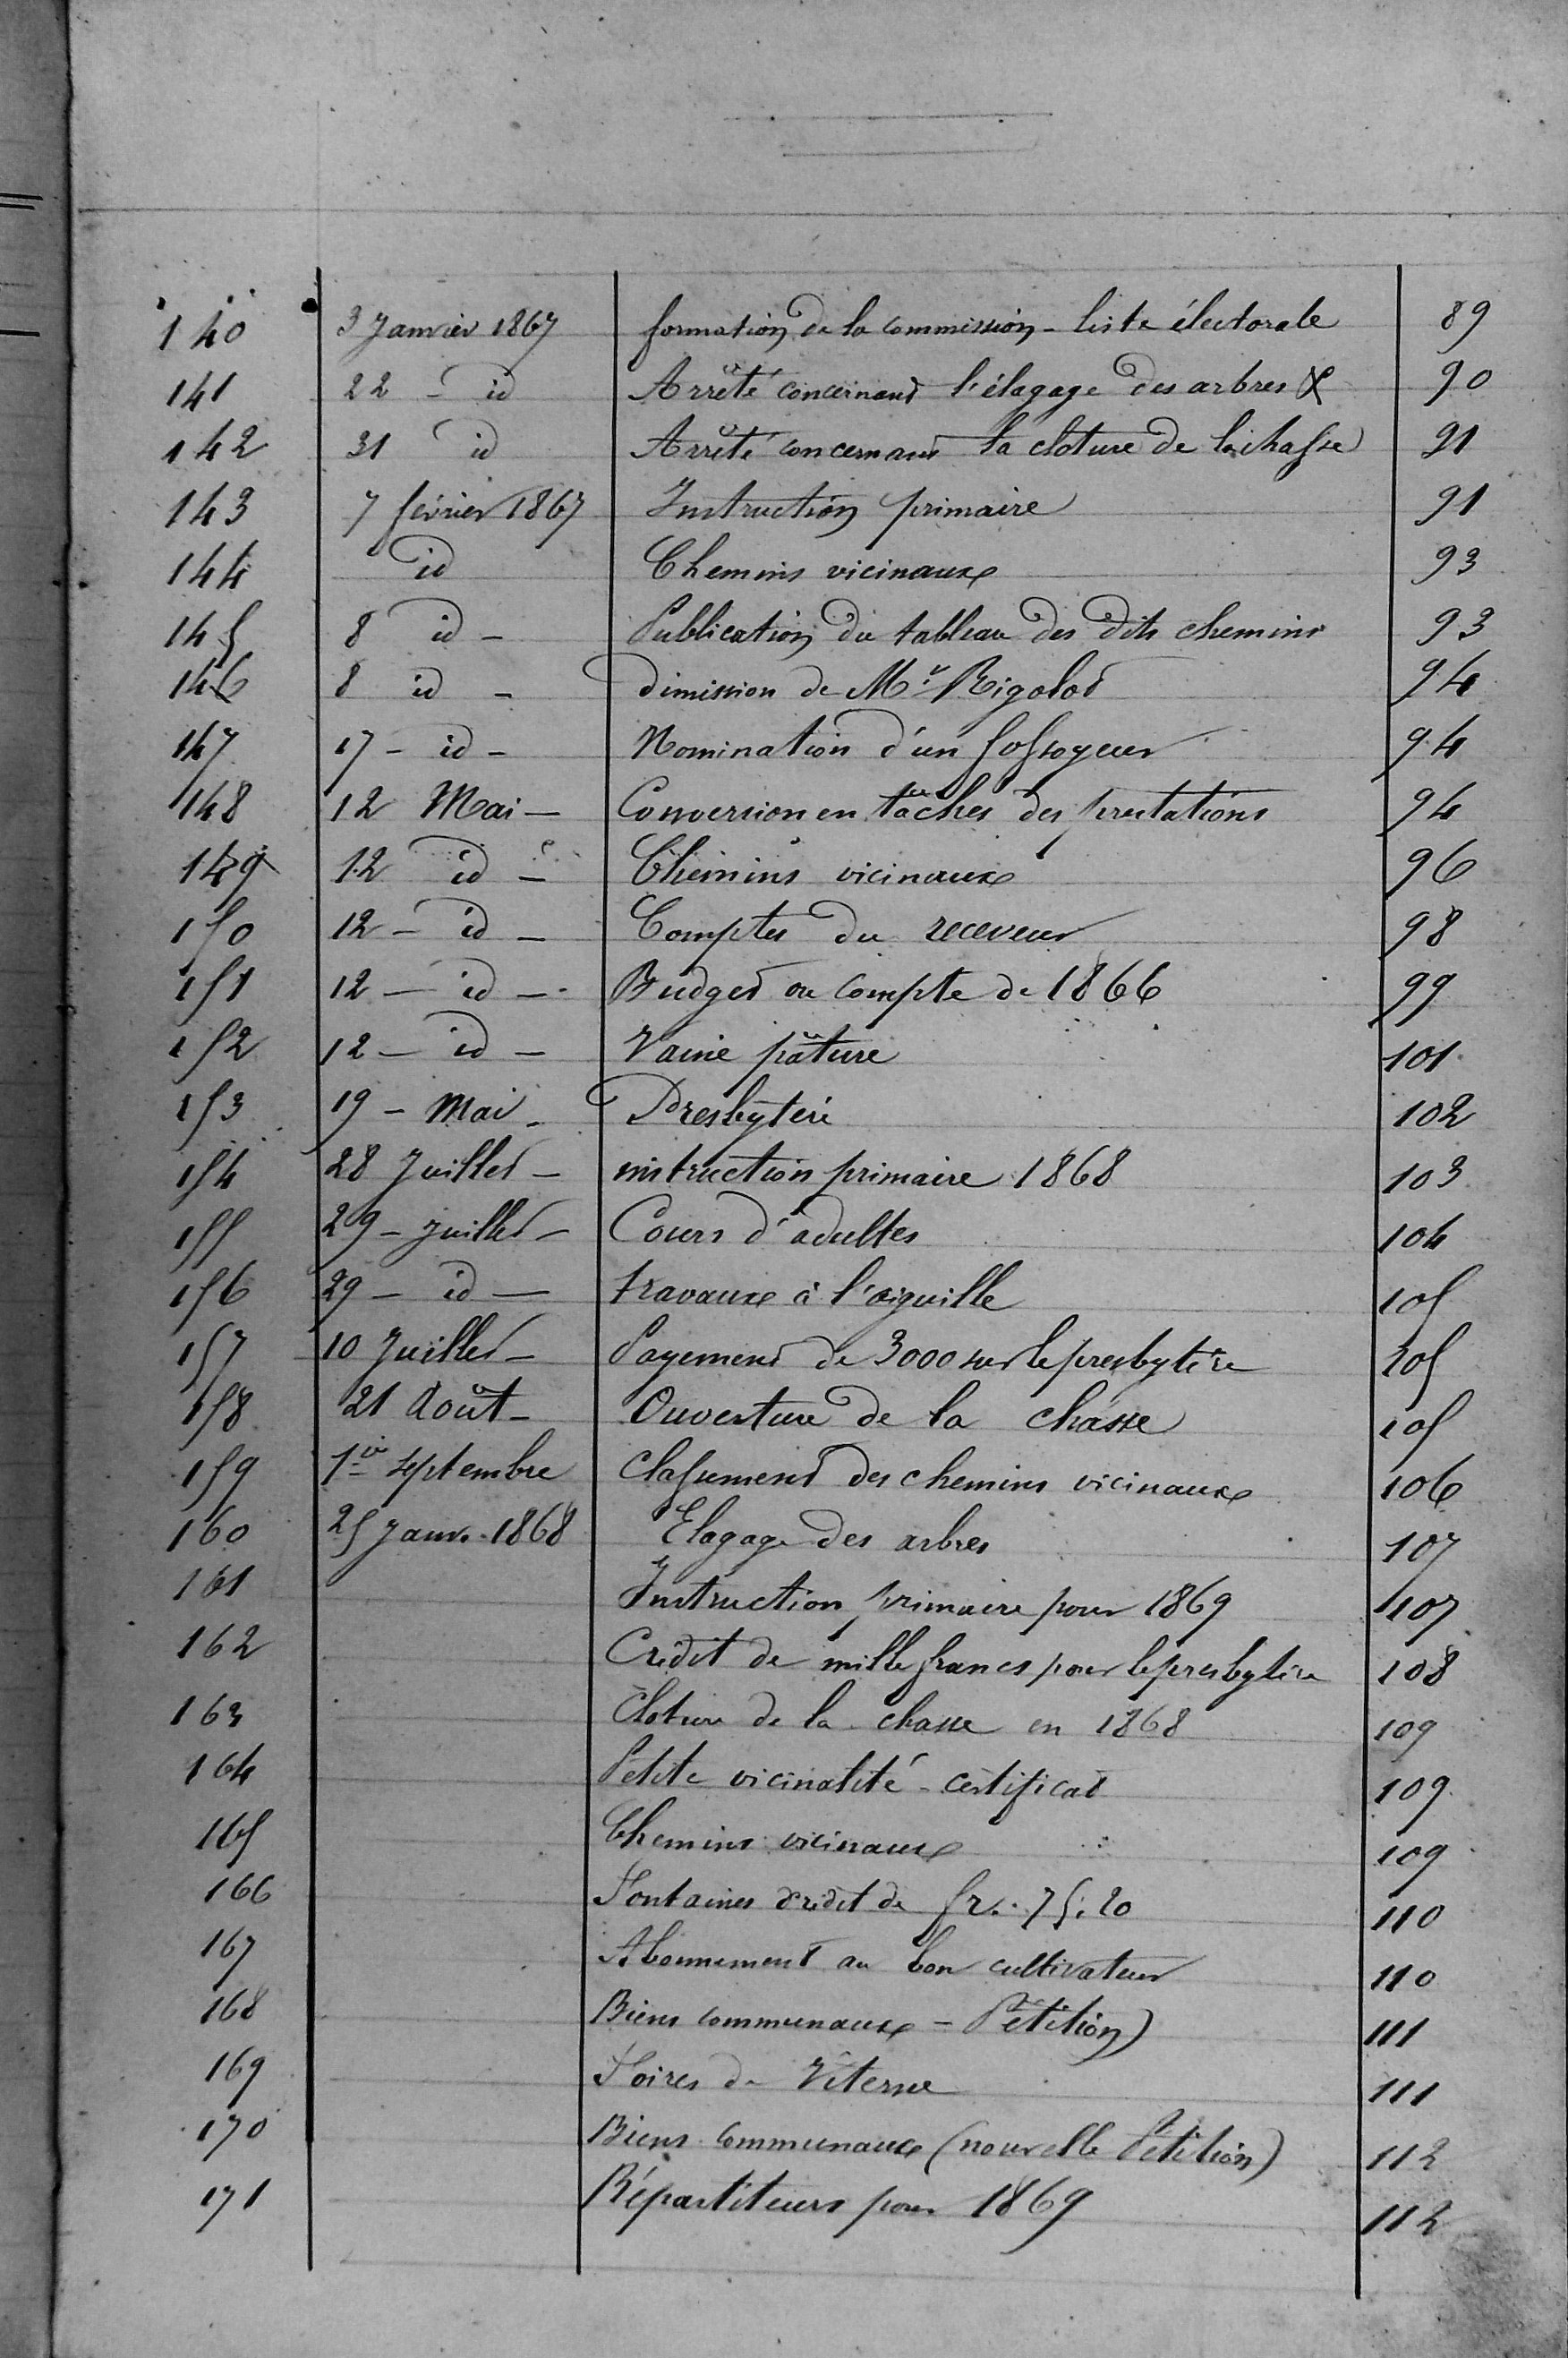 140 3 Janvier 1867 formation de la commission - liste électorale 89
141 22 - id Arrêté concernant l'élagage des arbres & 90
142 31 id Arrêté concernant la cloture de la chasse 91
143 7 février 1867 Instruction primaire 91
144 id Chemins vicinaux 93
145 8 id - Publication du tableau des dits chemins 93
146 8 id - démission de Mr Rigolot 94
147 17 - id - Nomination d'un fossoyeur 94
148 12 Mai - Conversion en tâches des prestations 94
149 12 id - Chemins vicinaux 96
150 12 - id - Comptes du receveur 98
151 12 - id - Budget ou compte de 1866 99
152 12 - id - Vaine pâture 101
153 19 - Mai - Presbytère 102
154 28 Juillet - instruction primaire 1868 103
155 29 - juillet - Cours d'adultes 104
156 29 - id - travaux à l'aiguille 105
157 10 Juillet - Payement de 3000 sur le presbytère 105
158 21 Août - Ouverture de la chasse 105
159 1er septembre Classement des chemins vicinaux 106
160 25 Janv. 1868 Elagage des arbres 107
161 Instruction primaire pour 1869 107
162 Crédit de mille francs pour le presbytère 108
163 Cloture de la chasse en 1868 109
164 Petite vicinalité - certificat 109
165 Chemins vicinaux 109
166 Fontaines crédit de fr. 75,20 110
167 Abonnement au bon cultivateur 110
168 Biens communaux - Pétition) 111
169 Foires de Viterne 111
170 Biens communaux (nouvelle Pétition) 112
171 Répartiteurs pour 1869 112